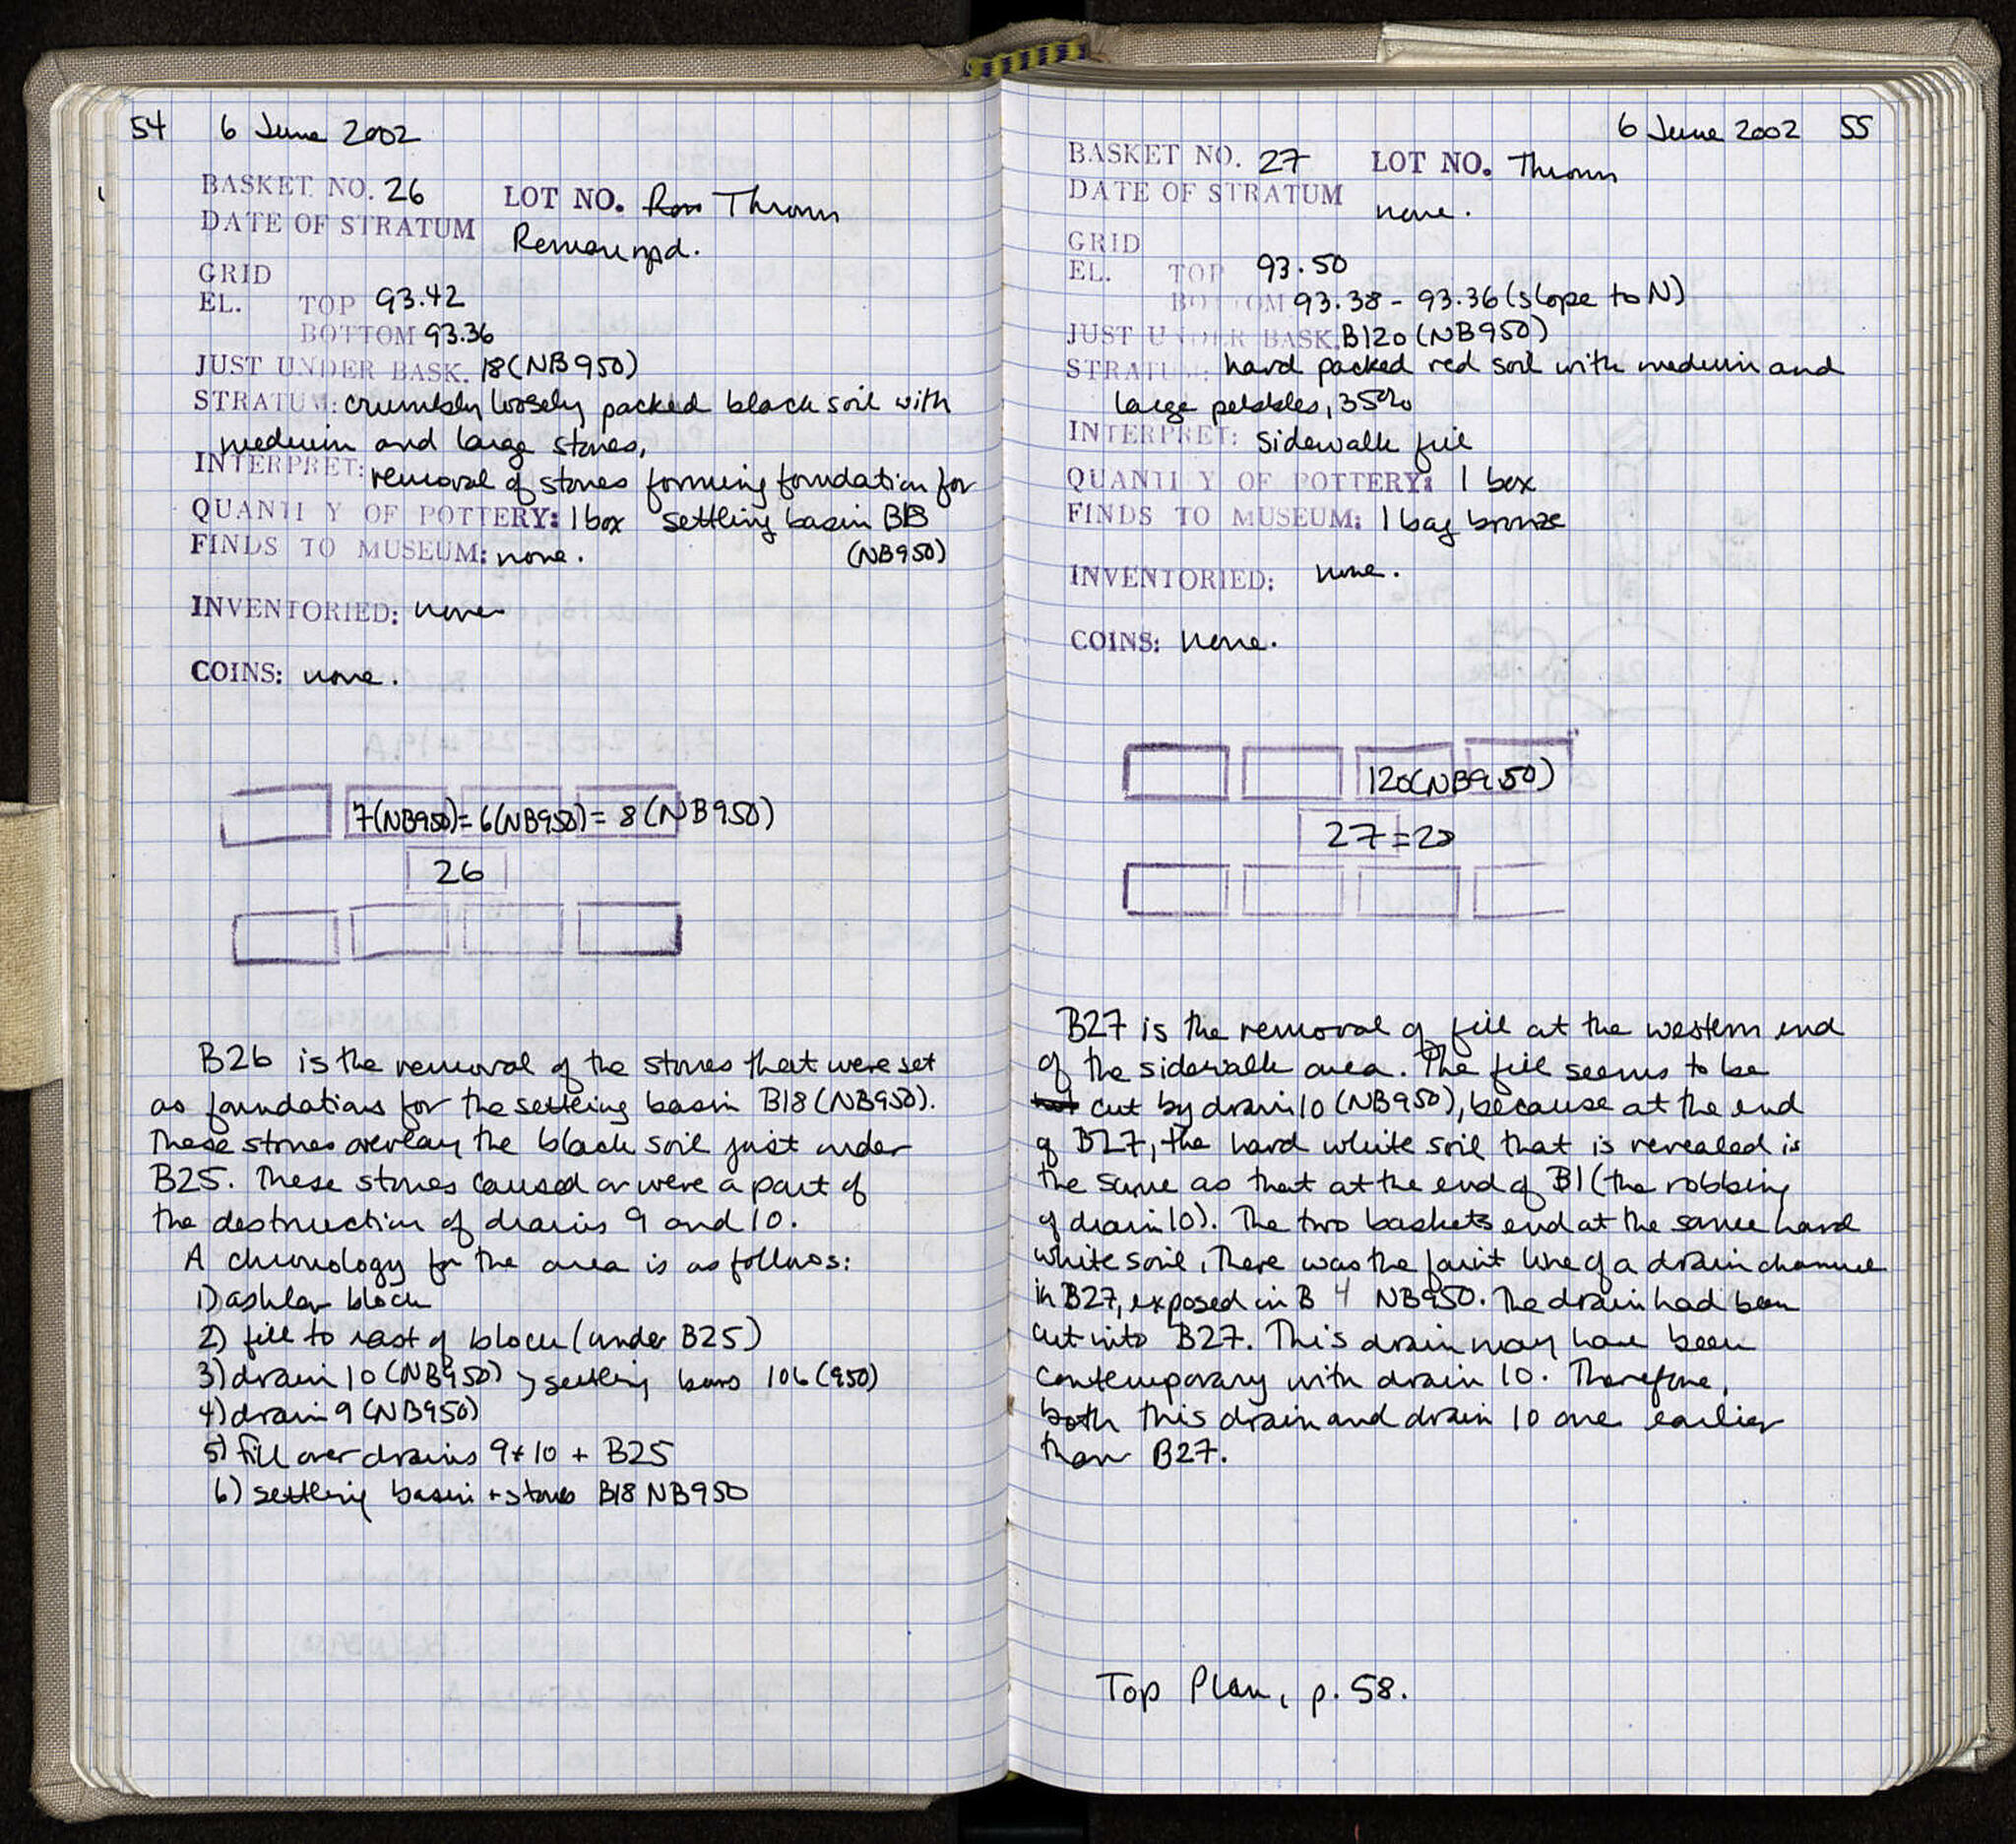 54 6 June 2002
BASKET NO. 26 LOT NO. Thrown
DATE OF STRATUM
GRID
EL. TOP 93.42
BOTTOM 93.36
JUST UNDER BASK. 18(NB950)
STRATUM: crumbly loosely packed black soil with
medium and large stones,
INTERPRET: removal of stones forming foundation for
QUANTITY OF POTTERY: 1 box settling basin B18
FINDS TO MUSEUM: none. (NB950)
INVENTORIED: none
COINS: none.
7(NB950)=6(NB950)=8(NB950)
26
B26 is the removal of the stones that were set
as foundations for the settling basin B18(NB950).
These stones overlay the black soil just under
B25. These stones caused or were a part of
the destruction of drains 9 and 10.
A chronology for the area is as follows:
1) ashlar block
2) fill to east of block (under B25)
3) drain 10 (NB950) settling 106 (950)
4) drain 9 (NB950)
5) fill over drains 9+10 + B25
6) settling basin + stones B18 NB950
6 June 2002 55
BASKET NO. 27 LOT NO. Thrown
DATE OF STRATUM none.
GRID
EL. TOP 93.50
BOTTOM 93.38-93.36 (slope to N)
JUST UNDER BASK. B120 (NB950)
STRATUM: hard packed red soil with medium and
large pebbles, 35%
INTERPRET: Sidewalk fill
QUANTITY OF POTTERY: 1 box
FINDS TO MUSEUM: 1 bag bronze
INVENTORIED: none.
COINS: none.
120(NB950)
27=
B27 is the removal of fill at the western end
of the sidewalk area. The fill seems to be
cut by drain 10 (NB950), because at the end
of B27, the hard white soil that is revealed is
the same as that at the end of B1 (the robbing
of drain 10). The two baskets end at the same hard
white soil. There was the faint line of a drain channel
in B27, exposed in B 4 NB950. The drain had been
cut into B27. This drain may have been
contemporary with drain 10. Therefore,
both this drain and drain 10 are earlier
than B27.
Top Plan, p. 58.